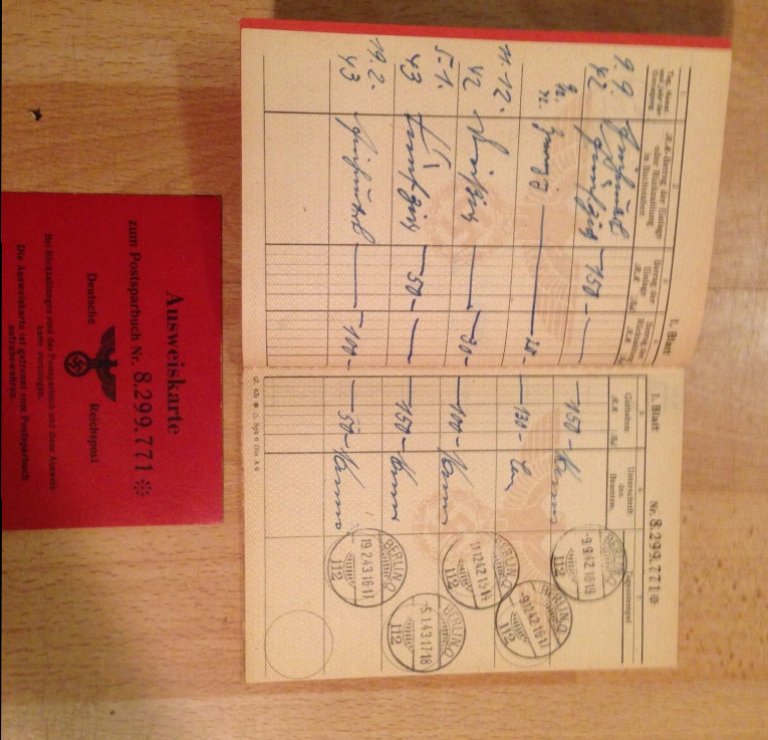 Ausweiskarte
zum Postsparbuch Nr. 8.299.771 ✻
Deutsche Reichspost
Bei Rückzahlungen sind das Postsparbuch und diese Ausweis-
karte vorzulegen.
Die Ausweiskarte ist getrennt vom Postsparbuch
aufzubewahren.
1. Blatt
1 2
Tag, Monat und Jahr der Eintragung
RM-Betrag der Einlage oder Rückzahlung in Buchstaben
Betrag der Einlage
RM Rpf
Betrag der Rückzahlung
RM Rpf
9.9. 42 Einhundert fünfzig — 150 —
9.12. 42 Zwanzig — 20 —
11.12. 42 Dreißig — 30 —
5.1. 43 Fünfzig — 50 —
19.2. 43 Einhundert — 100 —
1. Blatt Nr. 8.299.771 ✻
Guthaben
RM Rpf
Unterschrift des Beamten
Tagesstempel
— 150 —
BERLIN O
9.9.42
112
130 —
BERLIN O
-9.12.42.16-17
112
— 100 —
BERLIN O
11.12.42
112
— 150 —
BERLIN O
-5.1.43.17-18
112
— 50 —
BERLIN O
19.2.43.16-17
112